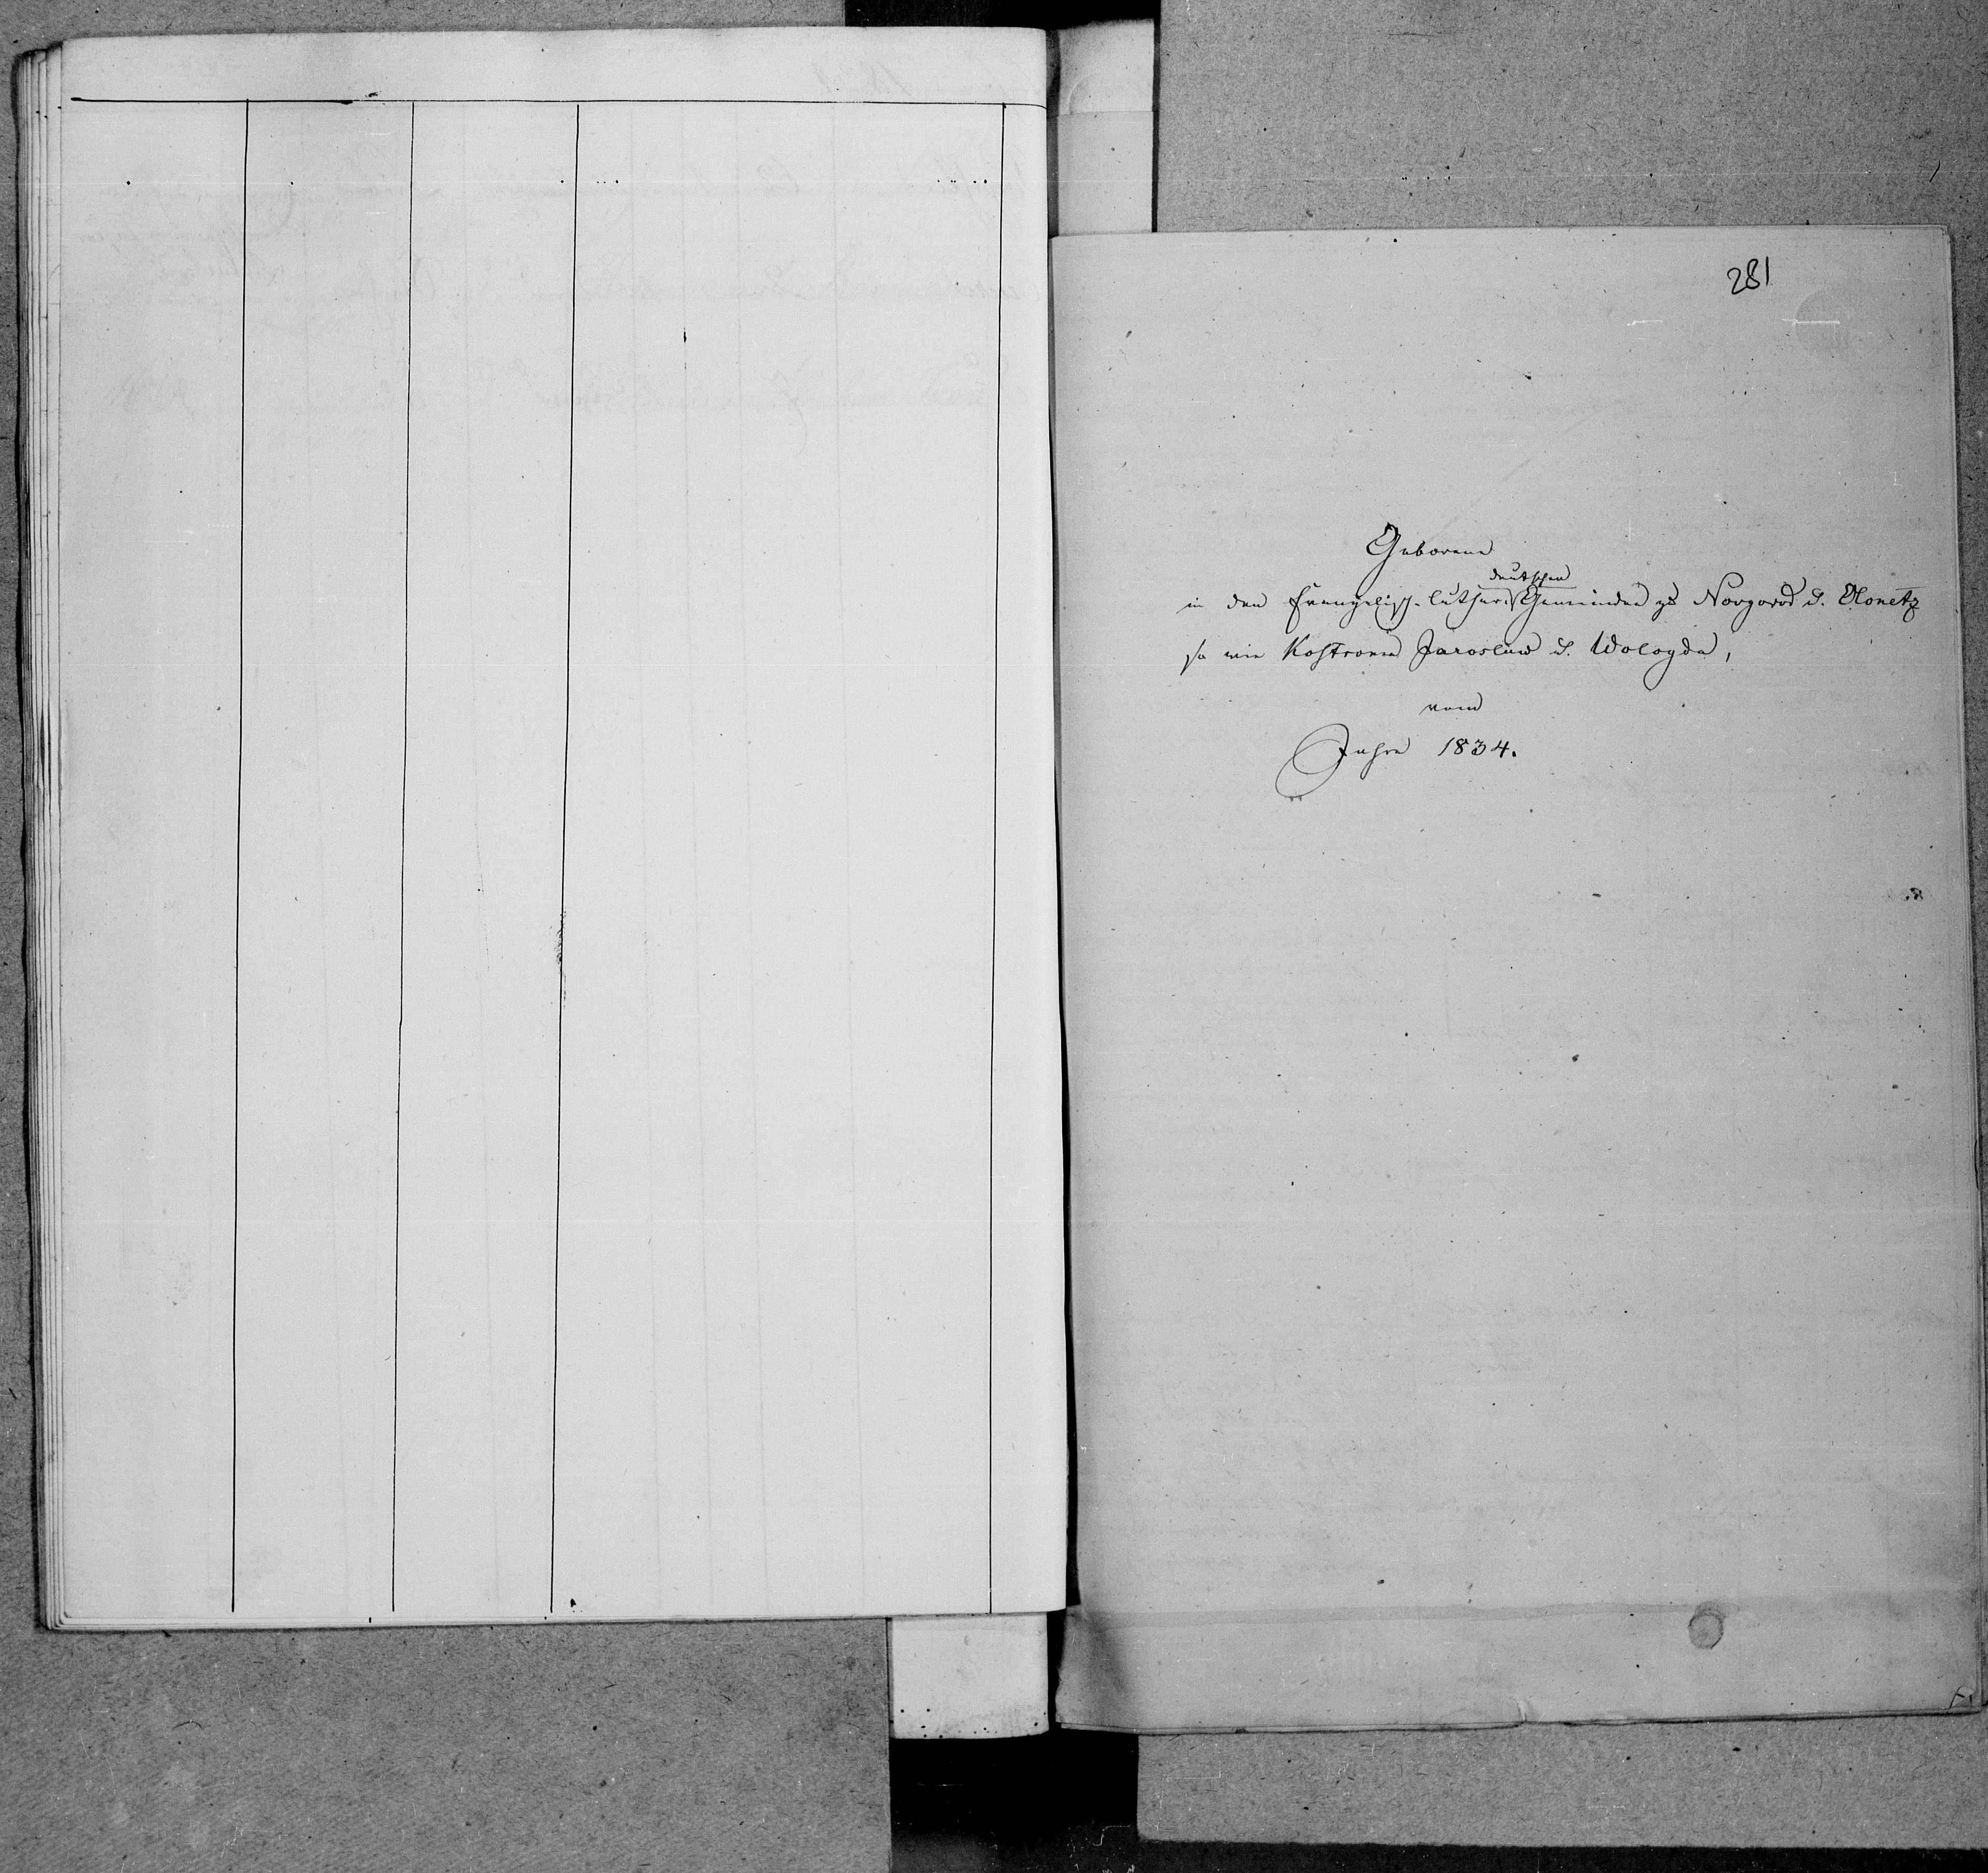 281
Geborene
in den Evangelisch-Luther: deutschen Gemeinden zu Novgorod u. Olonetz
so wie Kostroma Jaroslaw u. Wologda,
vom
Jahre 1834.